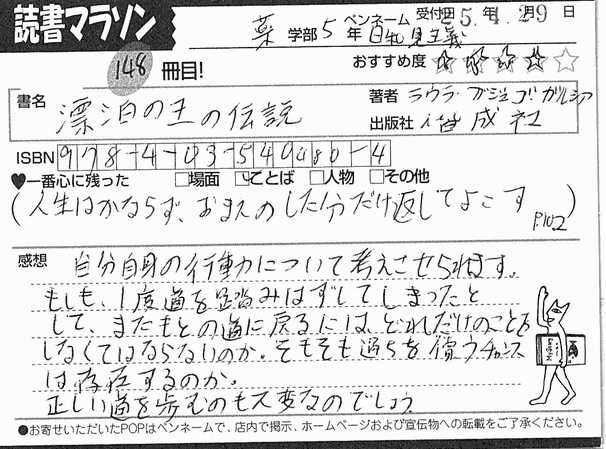 読書マラソン
薬 学部 5 年 ペンネーム 日和見主義 受付日 25年 4月 29日
148 冊目!
おすすめ度 ☆☆☆☆☆
書名 漂泊の王の伝説
著者 ラウラ・ガジェゴ・ガルシア
出版社 偕成社
ISBN 978-4-03-540480-4
♥一番心に残った □場面 □ことば □人物 □その他
(人生はかならず、おまえのした分だけ返してよこす P102)
感想 自分自身の行動について考えさせられます。
もしも、1度道を踏みはずしてしまったと
して、またもとの道に戻るには、どれだけのことを
しなくてはならないのか。そもそも過ちを償うチャンス
は存在するのか。
正しい道を歩むのも大変なのでしょう。
●お寄せいただいたPOPはペンネームで、店内で掲示、ホームページおよび宣伝物への転載をご了承ください。